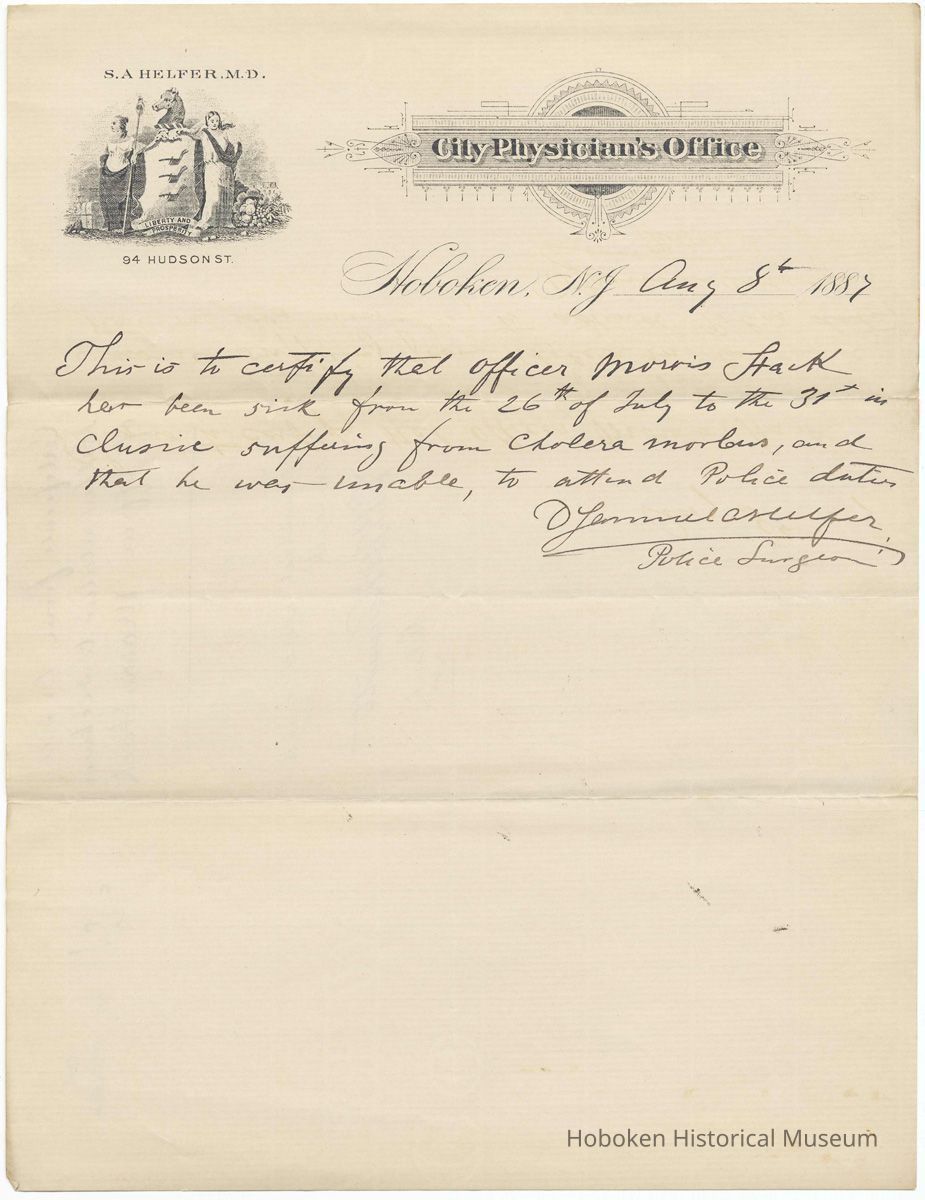 S. A HELFER, M.D.
LIBERTY AND
PROSPERITY
94 HUDSON ST.
City Physician's Office
Hoboken, N.J. Aug 8th 1887
This is to certify that officer Morris Stack
has been sick from the 26th of July to the 31st in
clusive suffering from Cholera morbus, and
that he was unable, to attend Police duties
Dr Samuel A Helfer
Police Surgeon
Hoboken Historical Museum